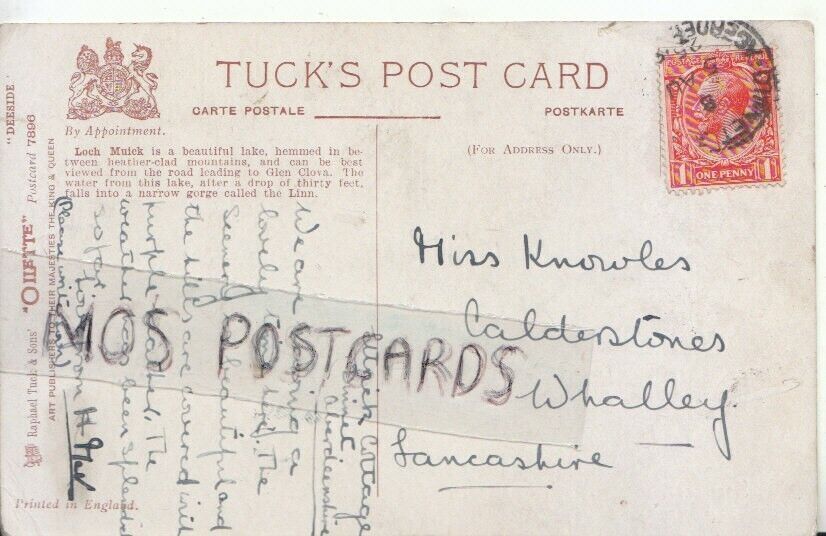 TUCK'S POST CARD
CARTE POSTALE
POSTKARTE
By Appointment.
(FOR ADDRESS ONLY.)
Loch Muick is a beautiful lake, hemmed in be-
tween heather-clad mountains, and can be best
viewed from the road leading to Glen Clova. The
water from this lake, after a drop of thirty feet,
falls into a narrow gorge called the Linn.
"DEESIDE"
Raphael Tuck & Sons' "OILETTE" Postcard 7896
ART PUBLISHERS TO THEIR MAJESTIES THE KING & QUEEN
Printed in England.
POSTAGE REVENUE
ONE PENNY
1 1
Miss Knowles
Calderstones
Whalley.
Lancashire
Cottage
Dinnet
Aberdeenshire
We are having a
lovely time here. The
scenery is beautiful and
the hills are covered with
purple heather. The
weather has been splendid
so far.
from H
MOS POSTCARDS